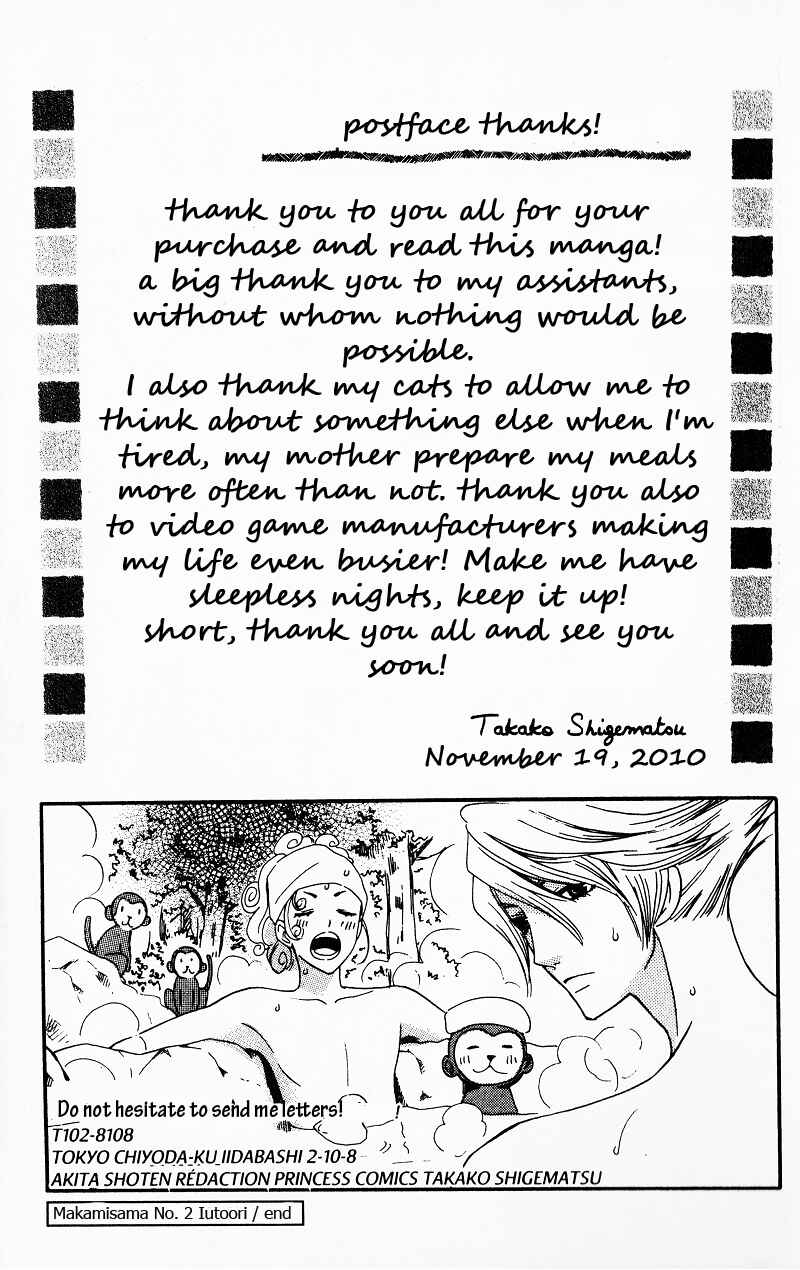 postface thanks!
thank you to you all for your
purchase and read this manga!
a big thank you to my assistants,
without whom nothing would be
possible.
I also thank my cats to allow me to
think about something else when I'm
tired, my mother prepare my meals
more often than not. thank you also
to video game manufacturers making
my life even busier! Make me have
sleepless nights, keep it up!
short, thank you all and see you
soon!
Takako Shigematsu
November 19, 2010
Do not hesitate to send me letters!
T102-8108
TOKYO CHIYODA-KU IIDABASHI 2-10-8
AKITA SHOTEN RÉDACTION PRINCESS COMICS TAKAKO SHIGEMATSU
Makamisama No. 2 Iutoori / end